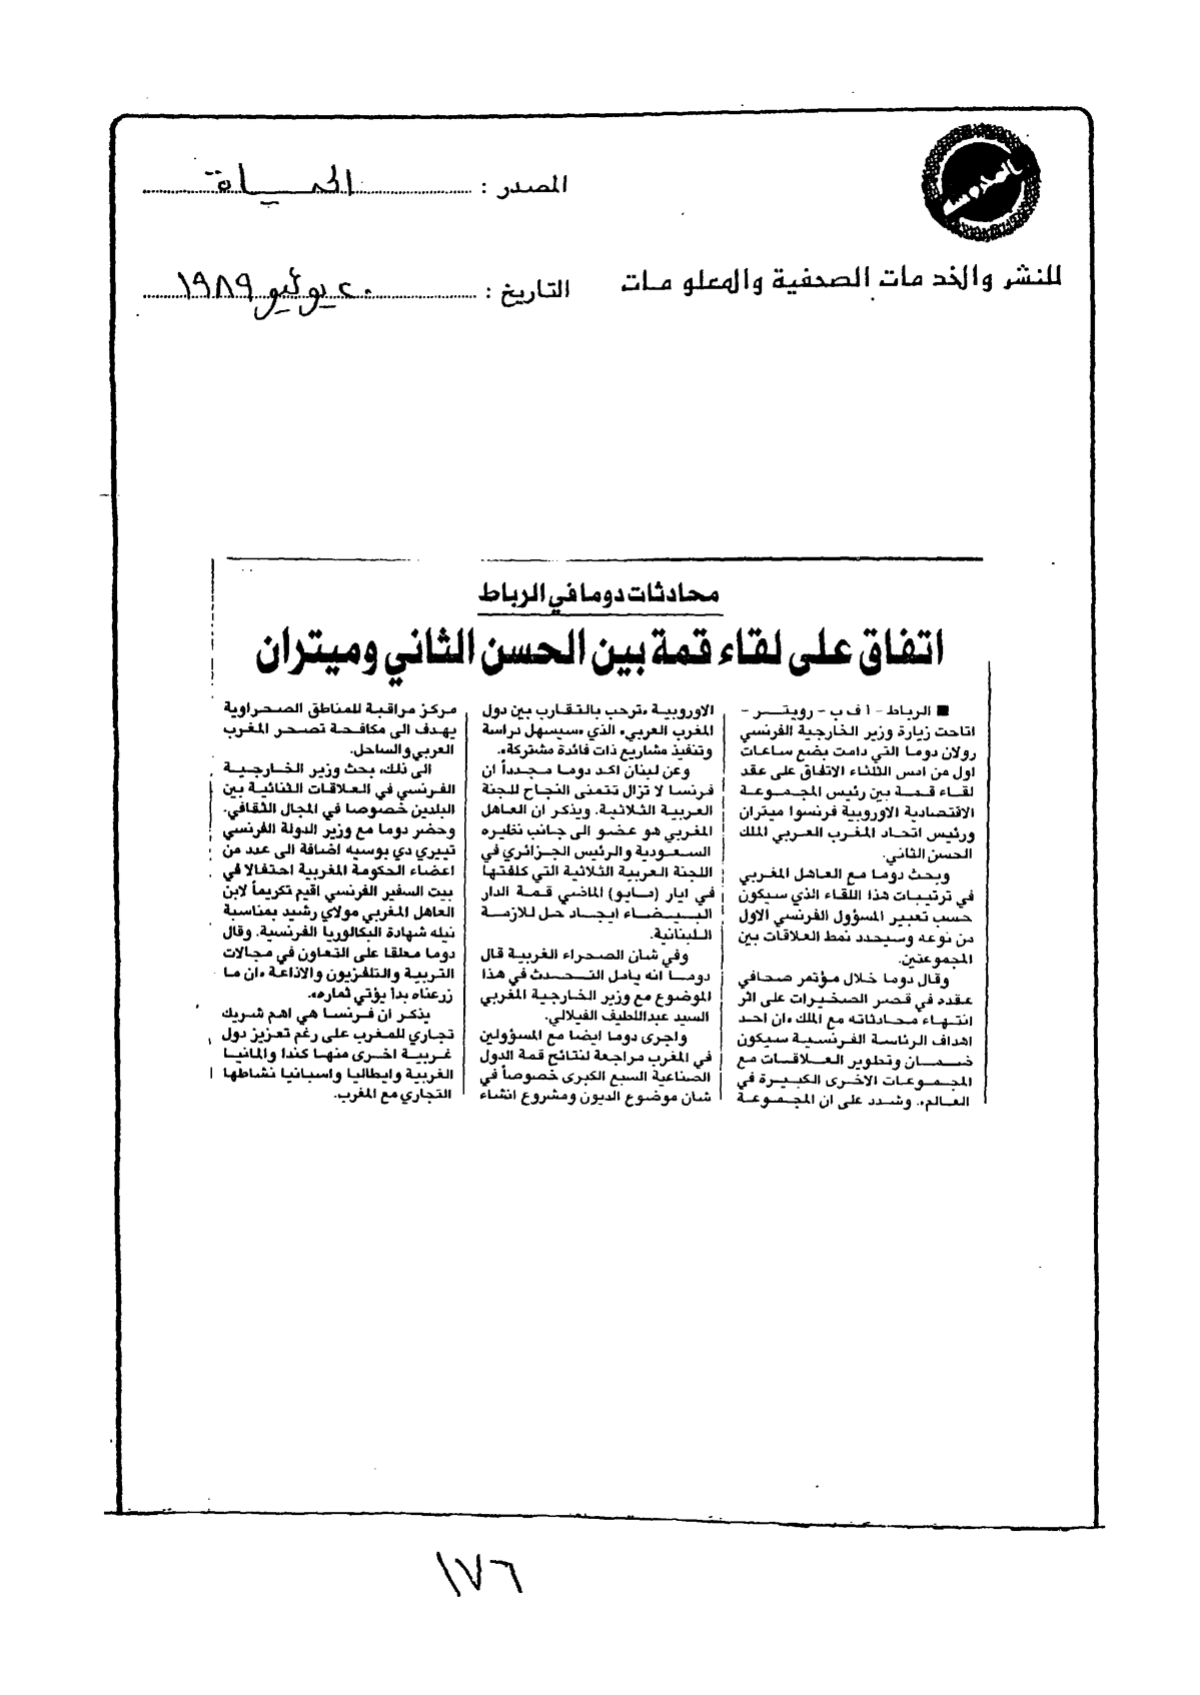 المصدر : الحياة
للنشر والخدمات الصحفية والمعلومات
التاريخ : ٢٠ يوليو ١٩٨٩
محادثات دوما في الرباط
اتفاق على لقاء قمة بين الحسن الثاني وميتران
■ الرباط - ا ف ب - رويتر -
اتاحت زيارة وزير الخارجية الفرنسي
رولان دوما التي دامت بضع ساعات
اول من امس الثلثاء الاتفاق على عقد
لقاء قمة بين رئيس المجموعة
الاقتصادية الاوروبية فرنسوا ميتران
ورئيس اتحاد المغرب العربي الملك
الحسن الثاني.
وبحث دوما مع العاهل المغربي
في ترتيبات هذا اللقاء الذي سيكون
حسب تعبير المسؤول الفرنسي الاول
من نوعه وسيحدد نمط العلاقات بين
المجموعتين.
وقال دوما خلال مؤتمر صحافي
عقده في قصر الصخيرات على اثر
انتهاء محادثاته مع الملك «ان احد
اهداف الرئاسة الفرنسية سيكون
ضمان وتطوير العلاقات مع
المجموعات الاخرى الكبيرة في
العالم». وشدد على ان المجموعة
الاوروبية «ترحب بالتقارب بين دول
المغرب العربي» الذي «سيسهل دراسة
وتنفيذ مشاريع ذات فائدة مشتركة».
وعن لبنان اكد دوما مجدداً ان
فرنسا لا تزال تتمنى النجاح للجنة
العربية الثلاثية. ويذكر ان العاهل
المغربي هو عضو الى جانب نظيره
السعودية والرئيس الجزائري في
اللجنة العربية الثلاثية التي كلفتها
في ايار (مايو) الماضي قمة الدار
البيضاء ايجاد حل للازمة
اللبنانية.
وفي شان الصحراء الغربية قال
دوما انه يامل التحدث في هذا
الموضوع مع وزير الخارجية المغربي
السيد عبداللطيف الفيلالي.
واجرى دوما ايضا مع المسؤولين
في المغرب مراجعة لنتائج قمة الدول
الصناعية السبع الكبرى خصوصاً في
شان موضوع الديون ومشروع انشاء
مركز مراقبة للمناطق الصحراوية
يهدف الى مكافحة تصحر المغرب
العربي والساحل.
الى ذلك، بحث وزير الخارجية
الفرنسي في العلاقات الثنائية بين
البلدين خصوصا في المجال الثقافي.
وحضر دوما مع وزير الدولة الفرنسي
تييري دي بوسيه اضافة الى عدد من
اعضاء الحكومة المغربية احتفالا في
بيت السفير الفرنسي اقيم تكريماً لابن
العاهل المغربي مولاي رشيد بمناسبة
نيله شهادة البكالوريا الفرنسية. وقال
دوما معلقا على التعاون في مجالات
التربية والتلفزيون والاذاعة «ان ما
زرعناه بدأ يؤتي ثماره».
يذكر ان فرنسا هي اهم شريك
تجاري للمغرب على رغم تعزيز دول
غربية اخرى منها كندا والمانيا
الغربية وايطاليا واسبانيا نشاطها
التجاري مع المغرب.
١٧٦